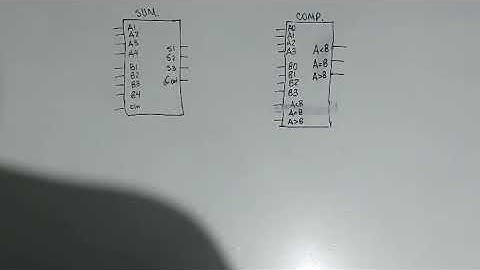 SUM.
A1
A2
A3
A4
B1
B2
B3
B4
Cin
S1
S2
S3
Cout
COMP.
A0
A1
A2
A3
B0
B1
B2
B3
A<B
A=B
A>B
A<B
A=B
A>B